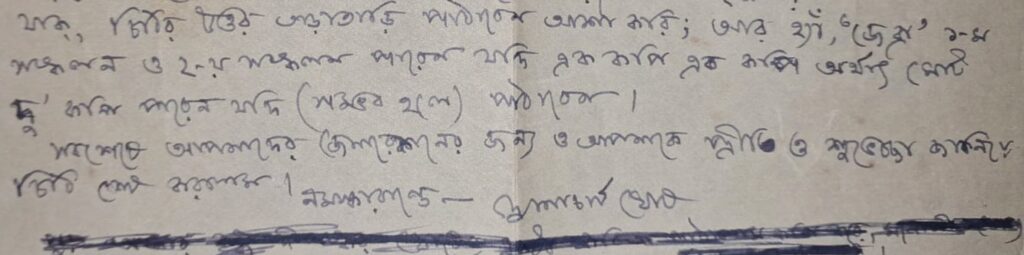 যাক্, চিঠির উত্তর তাড়াতাড়ি পাঠাবেন আশা করি; আর হ্যাঁ, ১-ম
সংকলন ও ২-য় সংকলন পারেন যদি এক কপি এক কপি অর্থাৎ মোট
দু' কপি পারেন যদি (সম্ভব হলে) পাঠাবেন।
সবশেষে আপনাদের জন্য ও আপনাকে প্রীতি ও শুভেচ্ছা জানিয়ে
চিঠি শেষ করলাম। নমস্কারান্তে — ঘোষ